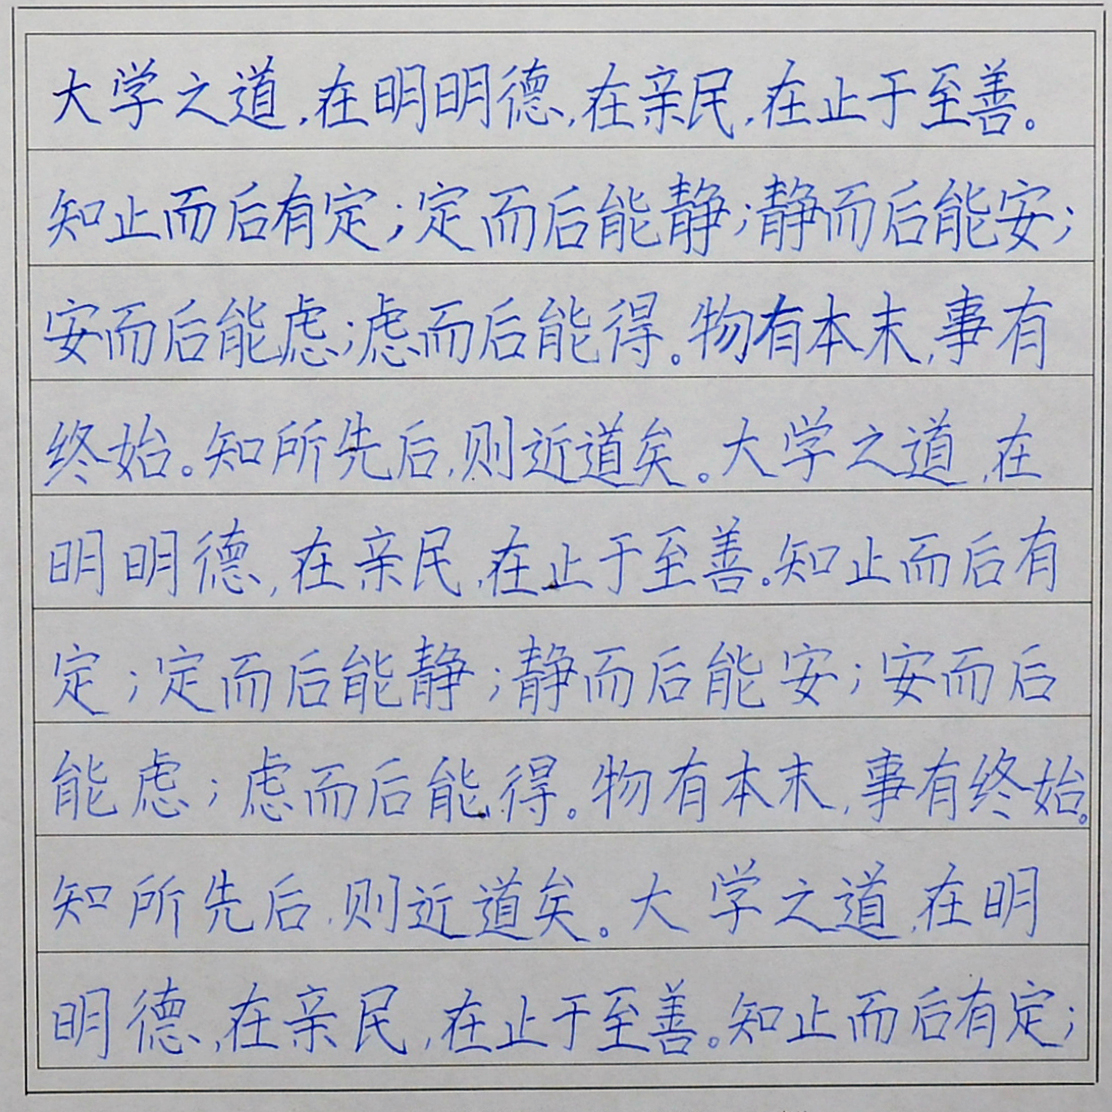 大学之道,在明明德,在亲民,在止于至善。
知止而后有定;定而后能静;静而后能安;
安而后能虑;虑而后能得。物有本末,事有
终始。知所先后,则近道矣。大学之道,在
明明德,在亲民,在止于至善。知止而后有
定;定而后能静;静而后能安;安而后
能虑;虑而后能得。物有本末,事有终始。
知所先后,则近道矣。大学之道,在明
明德,在亲民,在止于至善。知止而后有定;